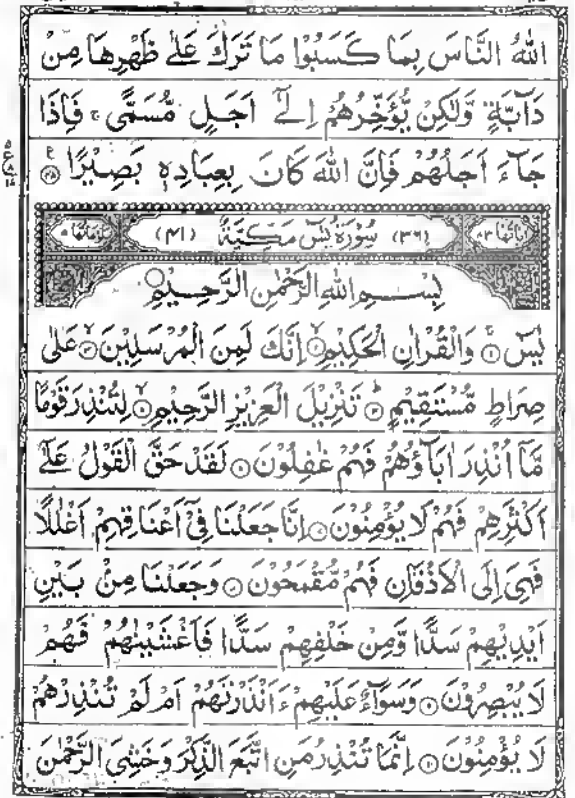 اللهُ النَّاسَ بِمَا كَسَبُوْا مَا تَرَكَ عَلٰى ظَهْرِهَا مِنْ
دَآبَّةٍ وَّلٰكِنْ يُّؤَخِّرُهُمْ اِلٰٓى اَجَلٍ مُّسَمًّى ۚ فَاِذَا
جَآءَ اَجَلُهُمْ فَاِنَّ اللهَ كَانَ بِعِبَادِهٖ بَصِيْرًا ﴿۴۵﴾
اٰيَاتُهَا ۸۳ (۳۶) سُوْرَةُ يٰسٓ مَكِّيَّةٌ (۴۱) رُكُوْعَاتُهَا ۵
بِسْمِ اللهِ الرَّحْمٰنِ الرَّحِيْمِ
يٰسٓ ﴿۱﴾ وَالْقُرْاٰنِ الْحَكِيْمِ ﴿۲﴾ اِنَّكَ لَمِنَ الْمُرْسَلِيْنَ ﴿۳﴾ عَلٰى
صِرَاطٍ مُّسْتَقِيْمٍ ﴿۴﴾ تَنْزِيْلَ الْعَزِيْزِ الرَّحِيْمِ ﴿۵﴾ لِتُنْذِرَ قَوْمًا
مَّآ اُنْذِرَ اٰبَآؤُهُمْ فَهُمْ غٰفِلُوْنَ ﴿۶﴾ لَقَدْ حَقَّ الْقَوْلُ عَلٰٓى
اَكْثَرِهِمْ فَهُمْ لَا يُؤْمِنُوْنَ ﴿۷﴾ اِنَّا جَعَلْنَا فِيْٓ اَعْنَاقِهِمْ اَغْلٰلًا
فَهِيَ اِلَى الْاَذْقَانِ فَهُمْ مُّقْمَحُوْنَ ﴿۸﴾ وَجَعَلْنَا مِنْۢ بَيْنِ
اَيْدِيْهِمْ سَدًّا وَّمِنْ خَلْفِهِمْ سَدًّا فَاَغْشَيْنٰهُمْ فَهُمْ
لَا يُبْصِرُوْنَ ﴿۹﴾ وَسَوَآءٌ عَلَيْهِمْ ءَاَنْذَرْتَهُمْ اَمْ لَمْ تُنْذِرْهُمْ
لَا يُؤْمِنُوْنَ ﴿۱۰﴾ اِنَّمَا تُنْذِرُ مَنِ اتَّبَعَ الذِّكْرَ وَخَشِيَ الرَّحْمٰنَ